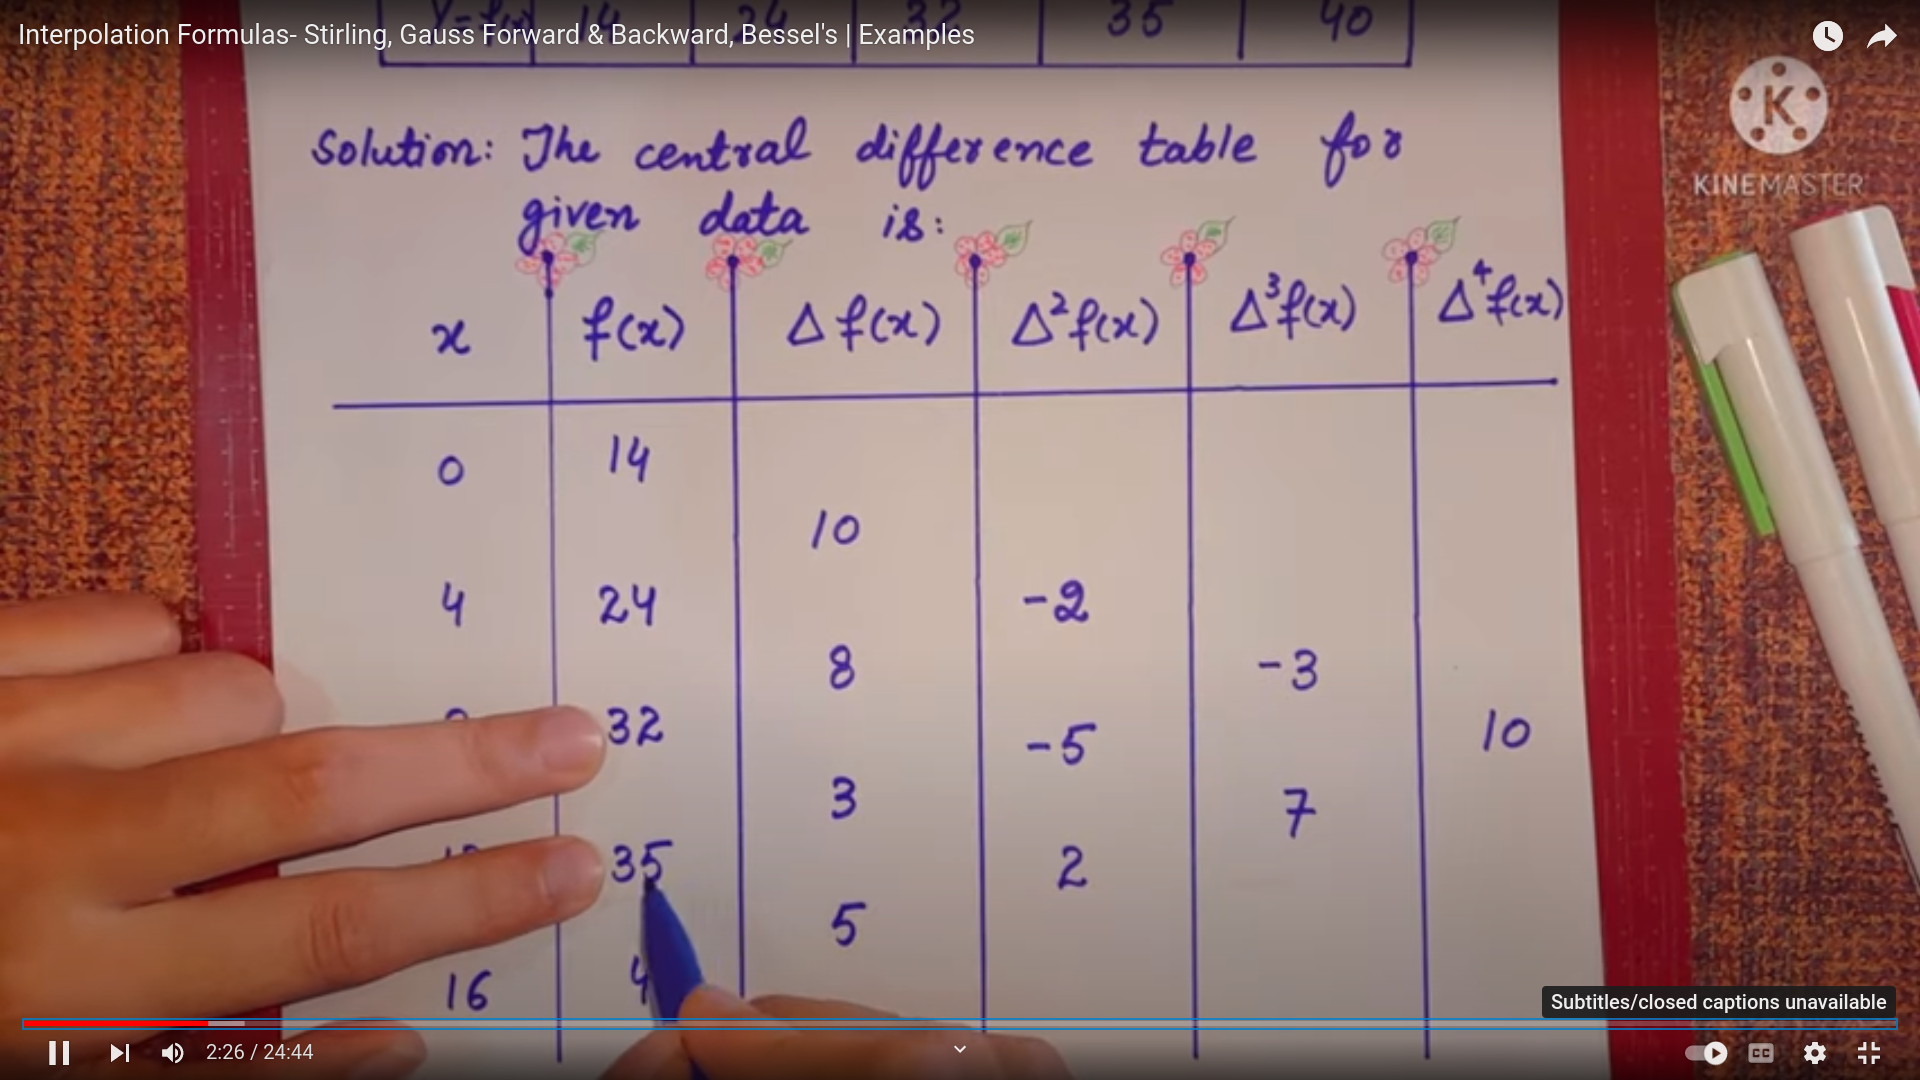 Interpolation Formulas- Stirling, Gauss Forward & Backward, Bessel's | Examples
14 24 32 35 40
K
KINEMASTER
Solution: The central difference table for
given data is:
x f(x) Δ f(x) Δ²f(x) Δ³f(x) Δ⁴f(x)
0 14
10
4 24 -2
8 -3
32 -5 10
3 7
35 2
5
16 4
Subtitles/closed captions unavailable
2:26 / 24:44
CC